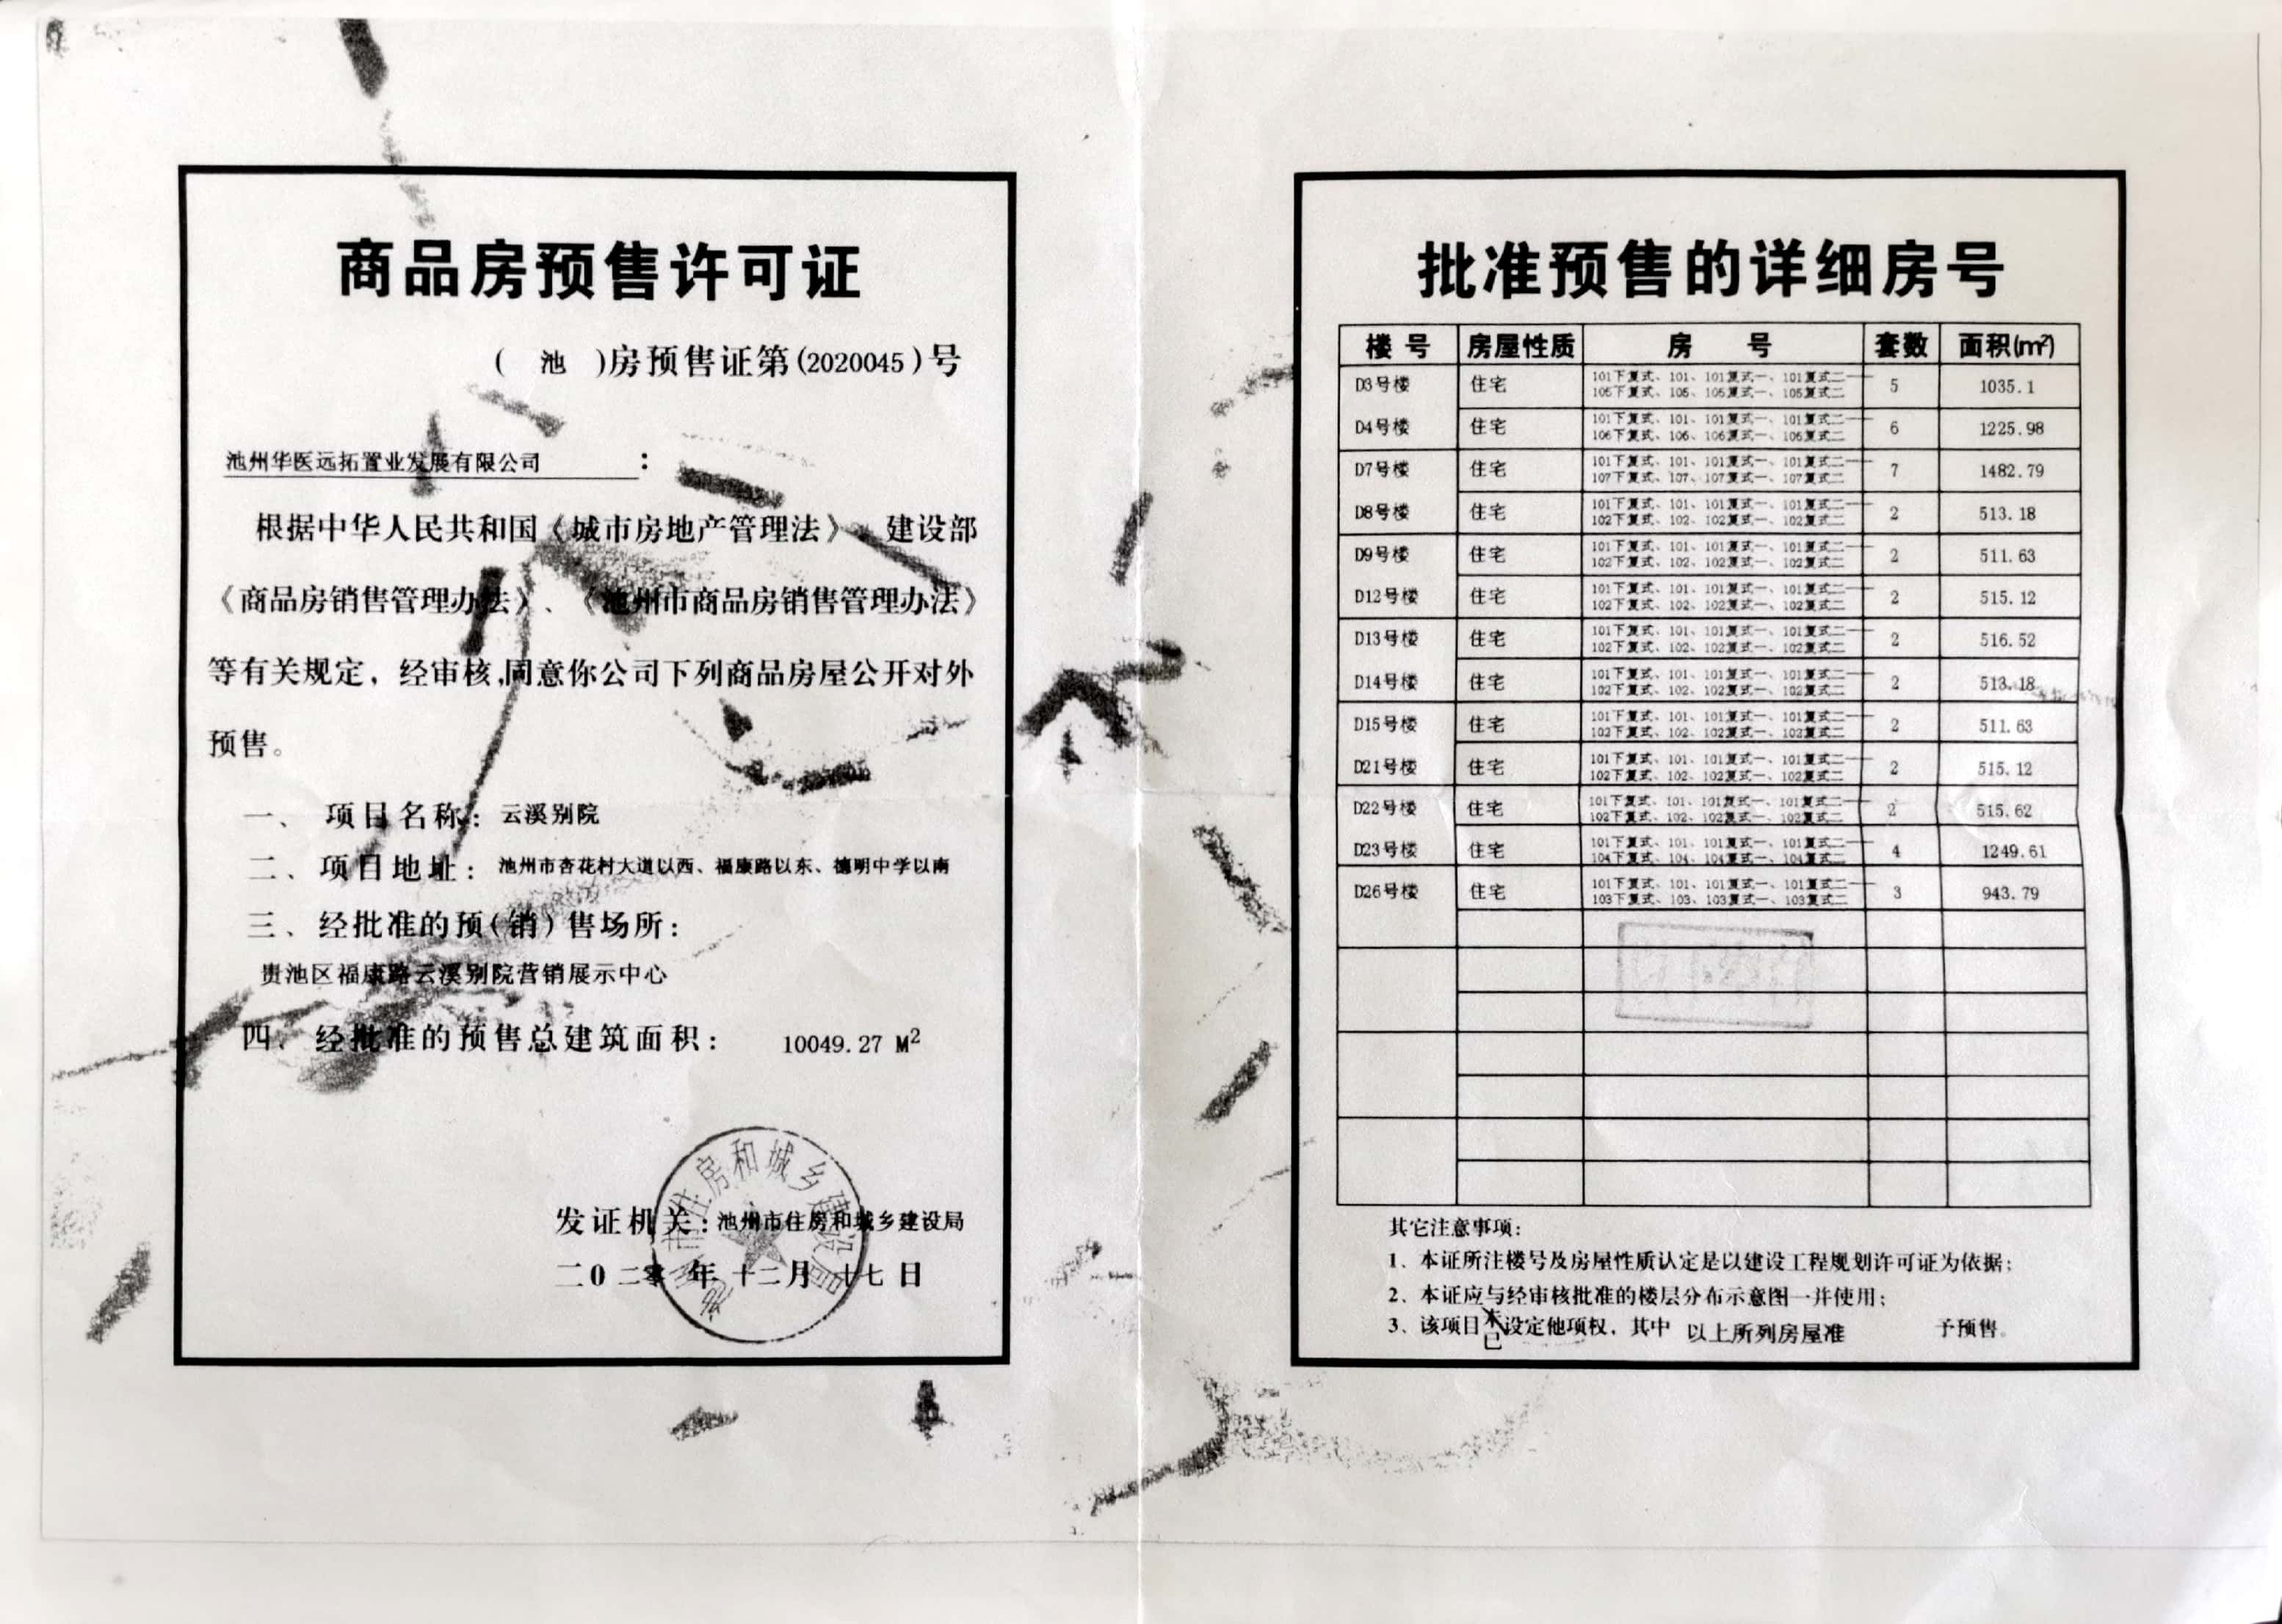 商品房预售许可证
( 池 )房预售证第(2020045)号
池州华医远拓置业发展有限公司:
根据中华人民共和国《城市房地产管理法》、建设部
《商品房销售管理办法》、《池州市商品房销售管理办法》
等有关规定，经审核,同意你公司下列商品房屋公开对外
预售。
一、 项目名称: 云溪别院
二、项目地址: 池州市杏花村大道以西、福康路以东、德明中学以南
三、经批准的预(销)售场所:
贵池区福康路云溪别院营销展示中心
四、经批准的预售总建筑面积: 10049.27 M²
发证机关:池州市住房和城乡建设局
二0二零年十二月十七日
池州市住房和城乡建设局
批准预售的详细房号
楼号 房屋性质 房 号 套数 面积(m²)
D3号楼 住宅 101下复式、101、101复式一、101复式二—
105下复式、105、105复式一、105复式二 5 1035.1
D4号楼 住宅 101下复式、101、101复式一、101复式二—
106下复式、106、106复式一、106复式二 6 1225.98
D7号楼 住宅 101下复式、101、101复式一、101复式二—
107下复式、107、107复式一、107复式二 7 1482.79
D8号楼 住宅 101下复式、101、101复式一、101复式二—
102下复式、102、102复式一、102复式二 2 513.18
D9号楼 住宅 101下复式、101、101复式一、101复式二—
102下复式、102、102复式一、102复式二 2 511.63
D12号楼 住宅 101下复式、101、101复式一、101复式二—
102下复式、102、102复式一、102复式二 2 515.12
D13号楼 住宅 101下复式、101、101复式一、101复式二—
102下复式、102、102复式一、102复式二 2 516.52
D14号楼 住宅 101下复式、101、101复式一、101复式二—
102下复式、102、102复式一、102复式二 2 513.18
D15号楼 住宅 101下复式、101、101复式一、101复式二—
102下复式、102、102复式一、102复式二 2 511.63
D21号楼 住宅 101下复式、101、101复式一、101复式二—
102下复式、102、102复式一、102复式二 2 515.12
D22号楼 住宅 101下复式、101、101复式一、101复式二—
102下复式、102、102复式一、102复式二 2 515.62
D23号楼 住宅 101下复式、101、101复式一、101复式二—
104下复式、104、104复式一、104复式二 4 1249.61
D26号楼 住宅 101下复式、101、101复式一、101复式二—
103下复式、103、103复式一、103复式二 3 943.79
其它注意事项:
1、本证所注楼号及房屋性质认定是以建设工程规划许可证为依据;
2、本证应与经审核批准的楼层分布示意图一并使用;
3、该项目未已设定他项权，其中 以上所列房屋准 予预售。